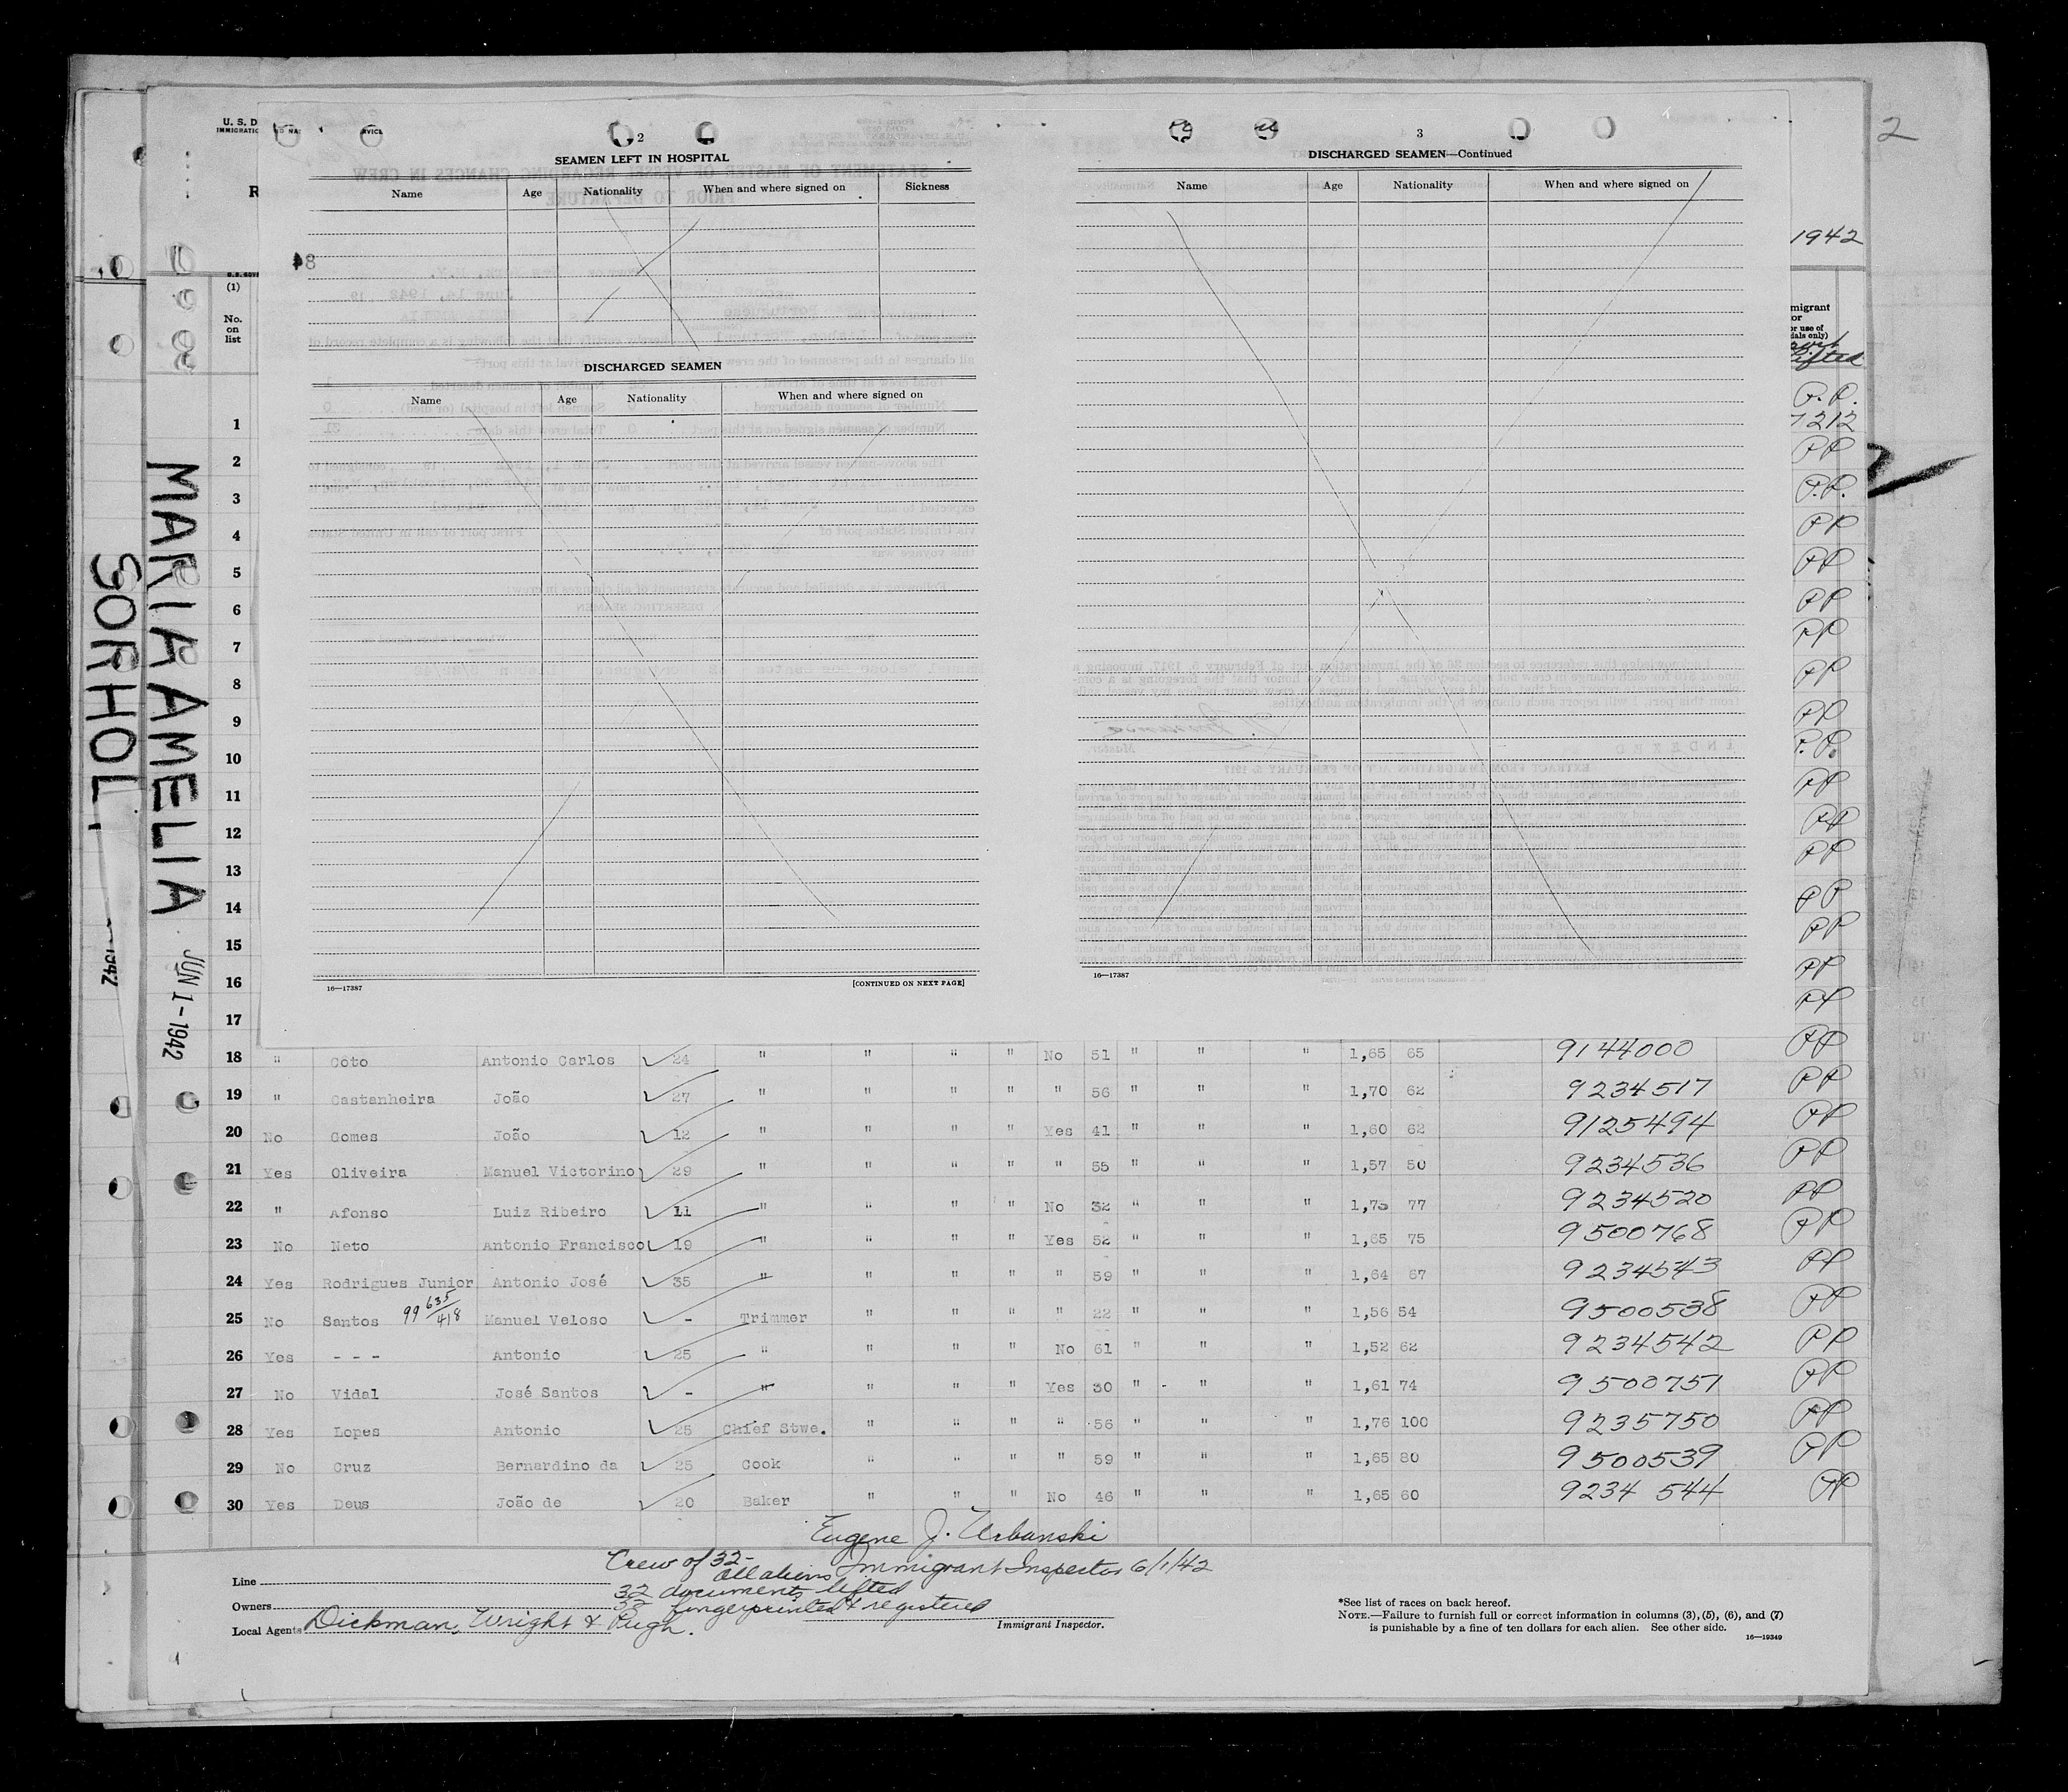 U. S. D
IMMIGRATIO
2
3
2
SEAMEN LEFT IN HOSPITAL
Name Age Nationality When and where signed on Sickness
8
DISCHARGED SEAMEN
Name Age Nationality When and where signed on
16—17387 [CONTINUED ON NEXT PAGE]
DISCHARGED SEAMEN—Continued
Name Age Nationality When and where signed on
16—17387
R
1942
(1)
No.
on
list
migrant
or
or use of
ials only)
lifted
SORHOL
1942
MARIA AMELIA
JUN 1-1942
1 P.P.
7212
2 PP
3 P.P.
4 PP
5 PP
6 PP
7 PP
8 PP
9 PP
10 P.P.
11 PP
12 PP
13 PP
14 PP
15 PP
16 PP
17 PP
18 " Coto Antonio Carlos 24 " " " " No 51 " " " 1,65 65 9144000 PP
19 " Castanheira João 27 " " " " " 56 " " " 1,70 62 9234517 PP
20 No Gomes João 12 " " " " Yes 41 " " " 1,60 62 9125494 PP
21 Yes Oliveira Manuel Victorino 29 " " " " " 55 " " " 1,57 50 9234536 PP
22 " Afonso Luiz Ribeiro 11 " " " " No 32 " " " 77 9234520 PP
23 No Neto Antonio Francisco 19 " " " " Yes 52 " " " 1,65 75 9500768 PP
24 Yes Rodrigues Junior Antonio José 35 " " " " " 59 " " " 1,64 67 9234543 PP
25 No Santos 99 635/418 Manuel Veloso - Trimmer " " " " 22 " " " 1,56 54 9500538 PP
26 Yes - - - Antonio 25 " " " " No 61 " " " 1,52 62 9234542 PP
27 No Vidal José Santos - " " " " Yes 30 " " " 1,61 74 9500751 PP
28 Yes Lopes Antonio 25 Chief Stwe. " " " " 56 " " " 1,76 100 9235750 PP
29 No Cruz Bernardino da 25 Cook " " " " 59 " " " 1,65 80 9500539 PP
30 Yes Deus João de 20 Baker " " " No 46 " " " 1,65 60 9234 544 PP
Eugene J. Urbanski
Crew of 32- All aliens Immigrant Inspector 6/1/42
Line
32 documents lifted
Owners
32 fingerprinted & registered
Local Agents Dickman, Wright & Pugh.
Immigrant Inspector.
*See list of races on back hereof.
NOTE.—Failure to furnish full or correct information in columns (3), (5), (6), and (7)
is punishable by a fine of ten dollars for each alien. See other side.
16—19349